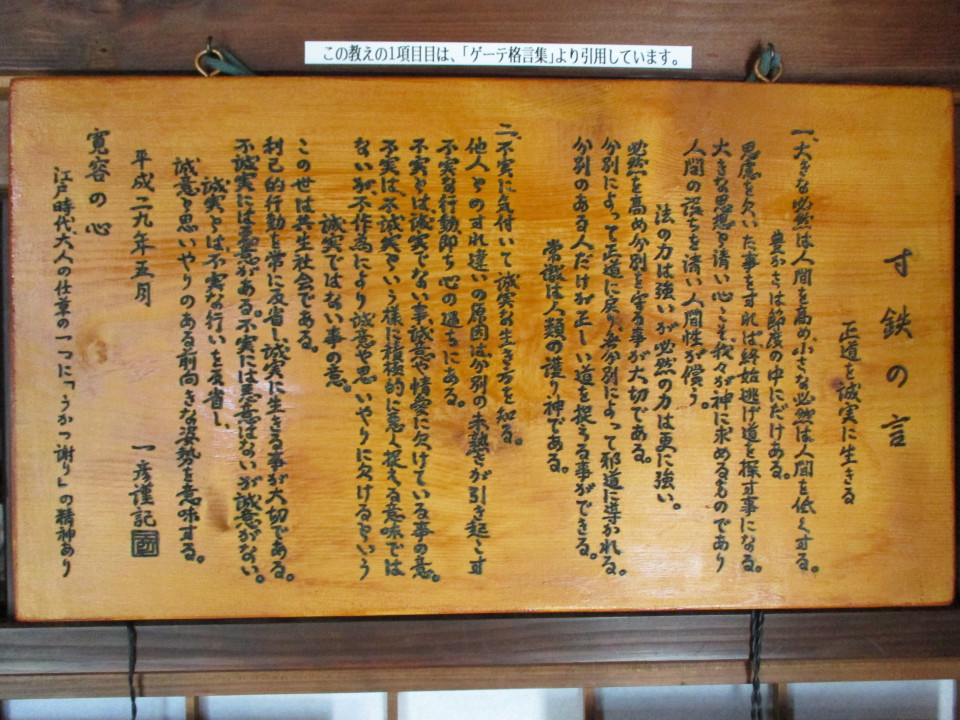 この教えの1項目目は、「ゲーテ格言集」より引用しています。
寸鉄の言
正道を誠実に生きる
一、大きな必然は人間を高め、小さな必然は人間を低くする。
豊かさは節度の中にだけある。
思慮を欠いた事をすれば終始逃げ道を探す事になる。
大きな思想と清い心こそ、我々が神に求めるものであり
人間の過ちを清い人間性が償う。
法の力は強いが必然の力は更に強い。
必然を高め分別を守る事が大切である。
分別によって正道に戻り、無分別によって邪道に導かれる。
分別のある人だけが正しい道を捉える事ができる。
常識は人類の護り神である。
二、不実に気付いて誠実な生き方を知る。
他人とのすれ違いの原因は分別の未熟さが引き起こす
不実な行動即ち心の過ちにある。
不実とは誠実でない事、誠意や情愛に欠けている事の意。
不実は、不誠実という様に積極的に悪人捉える意味では
ないが、不作為により誠意や思いやりに欠けるという
誠実ではない事の意。
この世は共生社会である。
利己的行動を常に反省し、誠実に生きる事が大切である。
不誠実には悪意がある。不実には悪意はないが誠意がない。
誠実とは、不実な行いを反省し、
誠意と思いやりのある前向きな姿勢を意味する。
平成二九年五月 一彦謹記
寛容の心
江戸時代大人の仕草の一つに「うかつ謝り」の精神あり